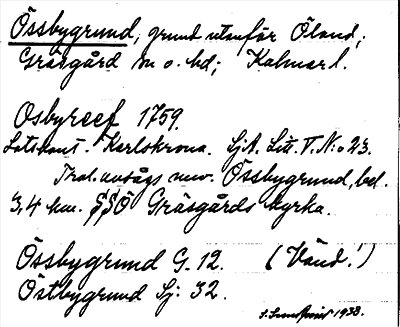 Össbygrund, grund utanför Öland;
Gräsgård sn o. hd; Kalmar l.
Osbyreef 1759.
Lotskont. Karlskrona. Sjk. Litt. T. No 23.
Trol. avsågs nuv. Össbygrund, bel.
3,4 km. SSÖ Gräsgårds kyrka.
Össbygrund G. 12. (Vänd!)
Östbygrund Sj. 32.
1938.